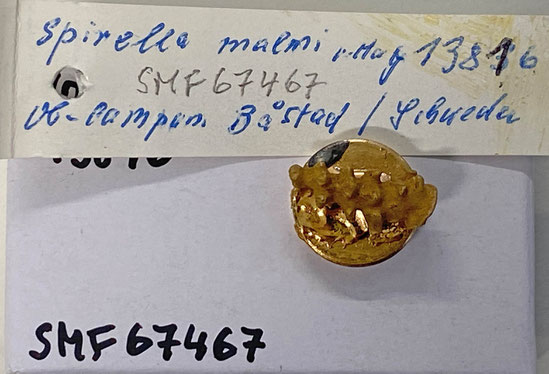 Spirella malmi v. Mag 13816
SMF 67467
Ob-Campan Båstad / Schweden
SMF 67467